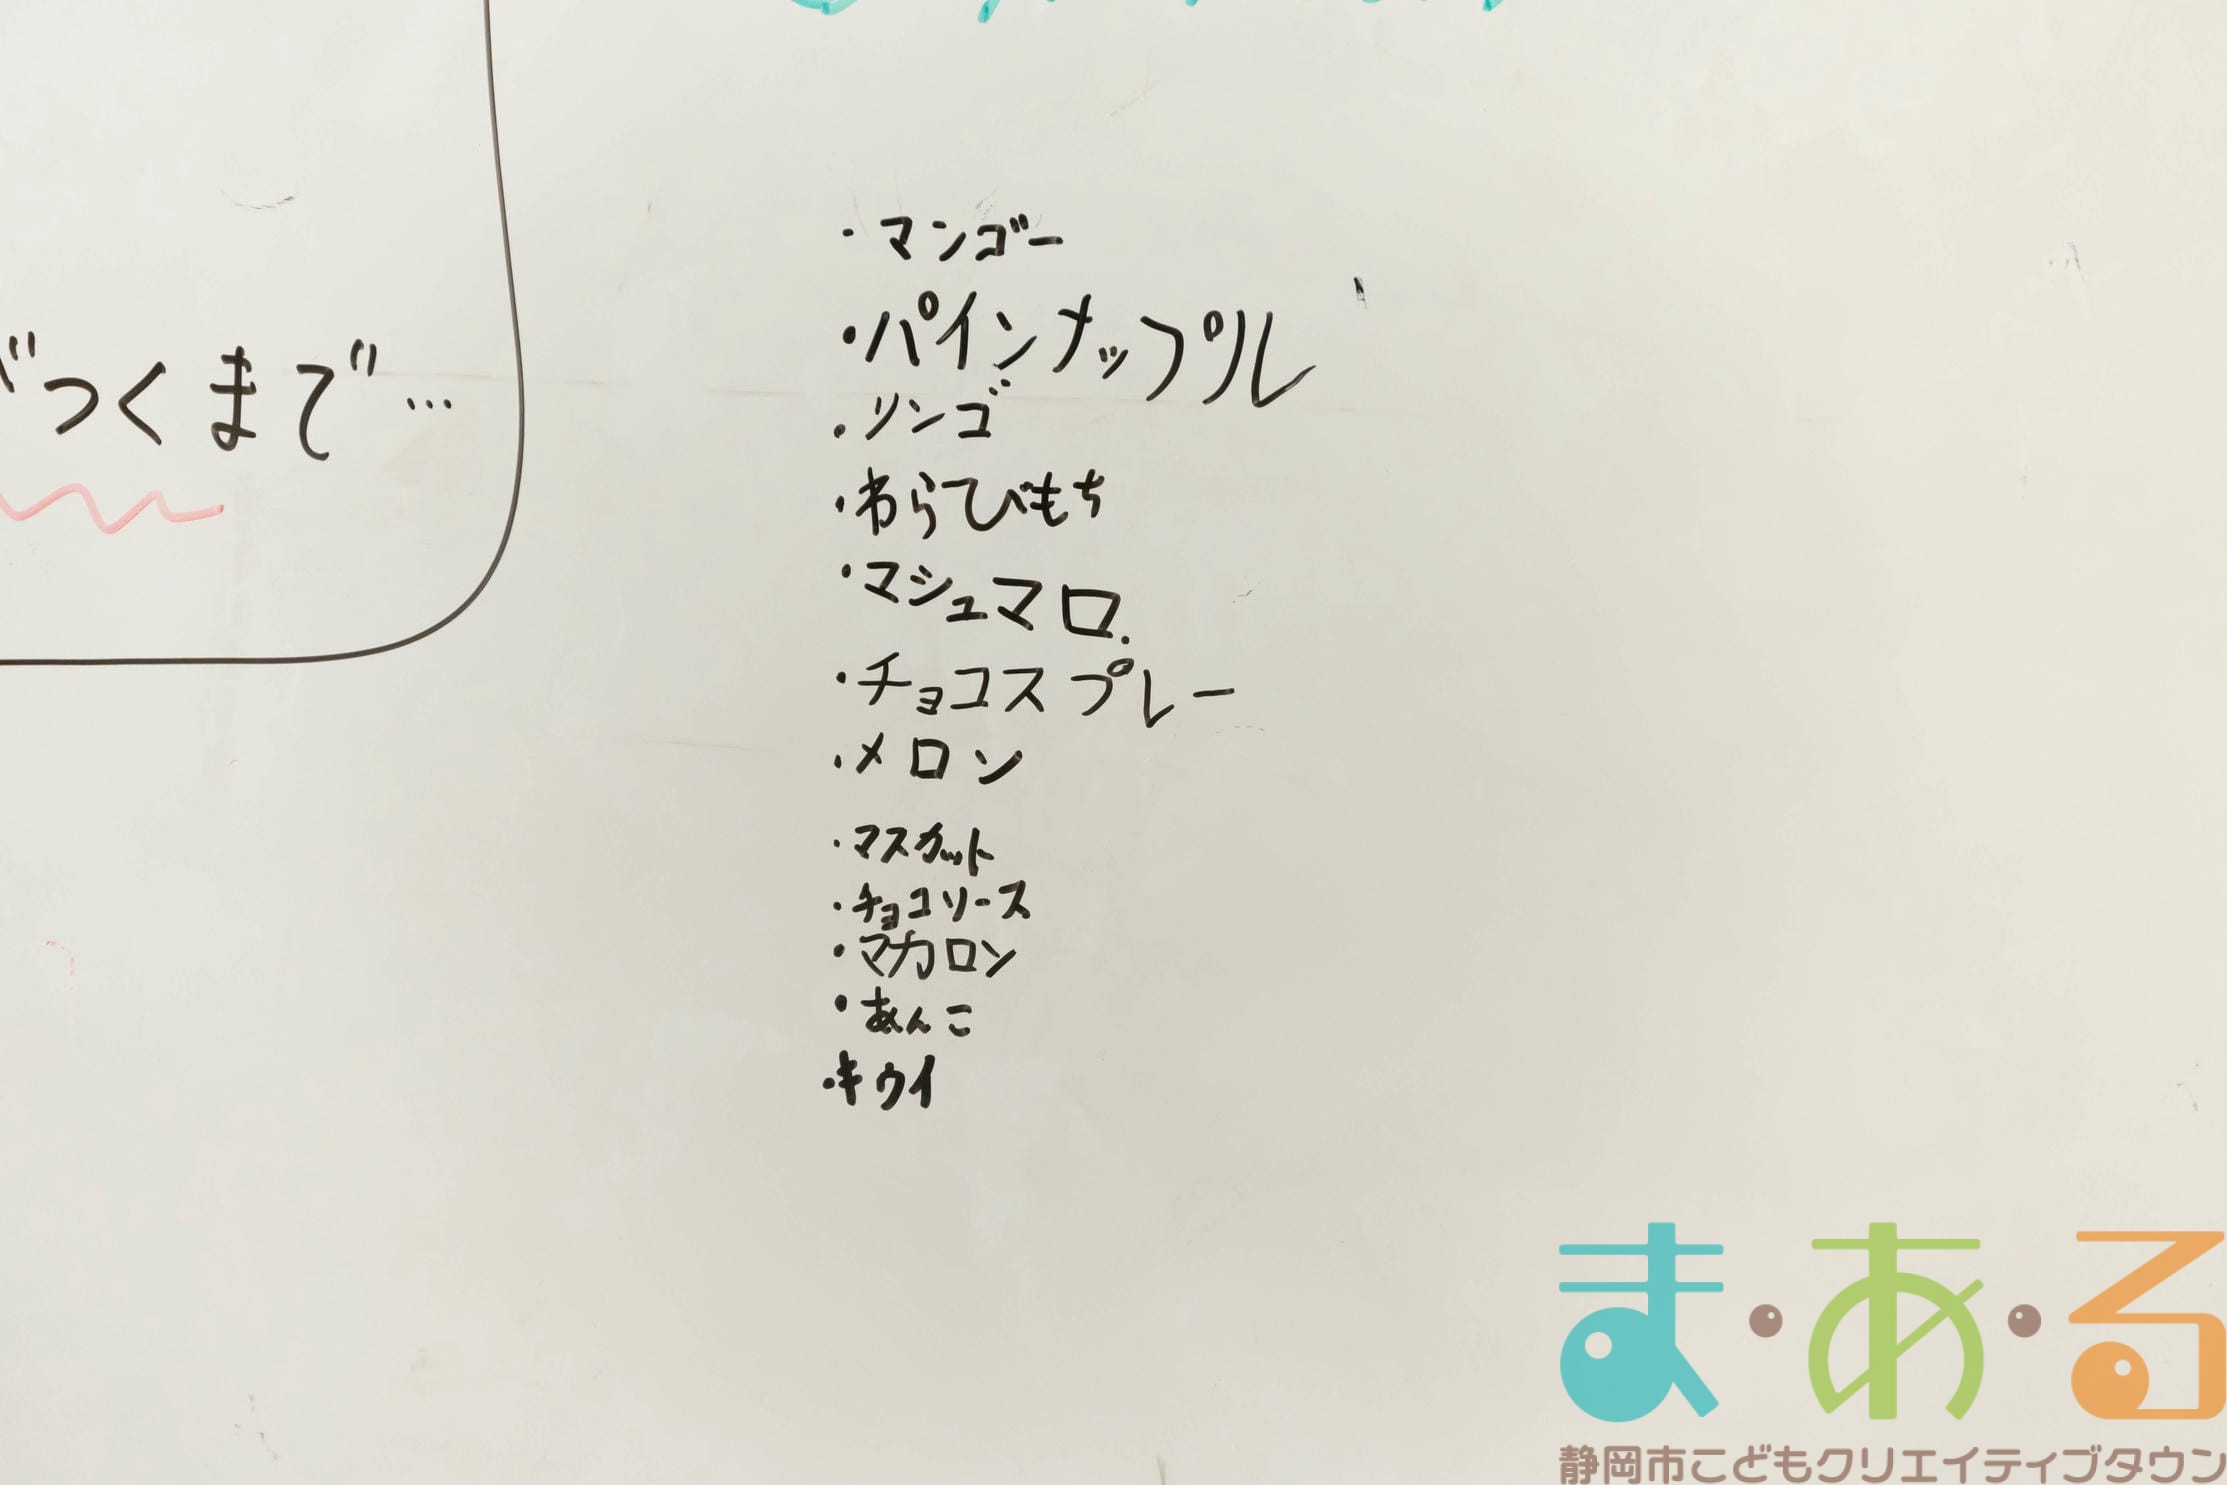 ・マンゴー
・パインナップル
・リンゴ
がつくまで…
・わらびもち
・マシュマロ.
・チョコスプレー
・メロン
・マスカット
・チョコソース
・マカロン
・あんこ
・キウイ
ま・あ・る
静岡市こどもクリエイティブタウン